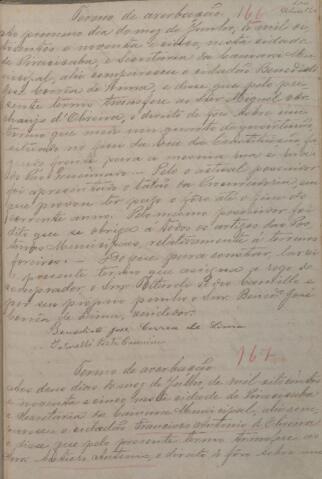 Termo de averbação 166
Ao primeiro dia do mez de Junho, de mil oi-
tocentos e noventa e cinco, nesta cidade
de Piracicaba, e Secretaria da Camara Mu-
nicipal, ahi compareceu o cidadão Benedicto
José Corrêa de Lima, e disse que pelo pre-
sente termo transfere ao Snr Miguel
d'Oliveira, o direito de fôro sobre um
terreno que mede um quarto de quarteirão
situado no fim da rua da Constituição fa-
zendo frente para a mesma rua e rua
do Pelo actual possuidor
foi apresentado o talão da Procuradoria, em
que provou ter pago o fôro até o fim do
corrente anno. Pelo mesmo possuidor foi
dito que se obriga a todos os artigos das Pos-
turas Municipaes, relativamente á terrenos
foreiros. — Do que para constar, lavrei
o presente termo que assigna a rogo do
comprador, o Snr
por seu proprio punho o Snr Benedicto José
Corrêa de Lima, vendedor.
Benedicto José Correa de Lima
167
Termo de averbação
Aos dous dias do mez de Julho, de mil oitocentos
e noventa e cinco, nesta cidade de Piracicaba
e Secretaria da Camara Municipal, ahi com-
pareceu o cidadão Francisco Antonio d'Oliveira
e disse que pelo presente termo transfere ao
Snr Antonio, o direito de fôro sobre um